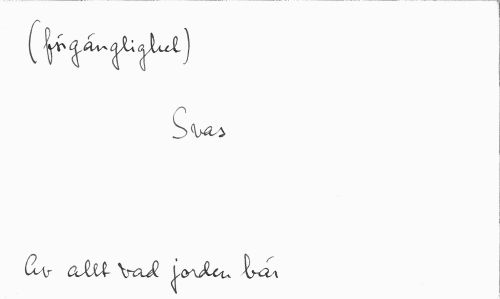 (förgänglighet)
Svas
Av allt vad jorden bär